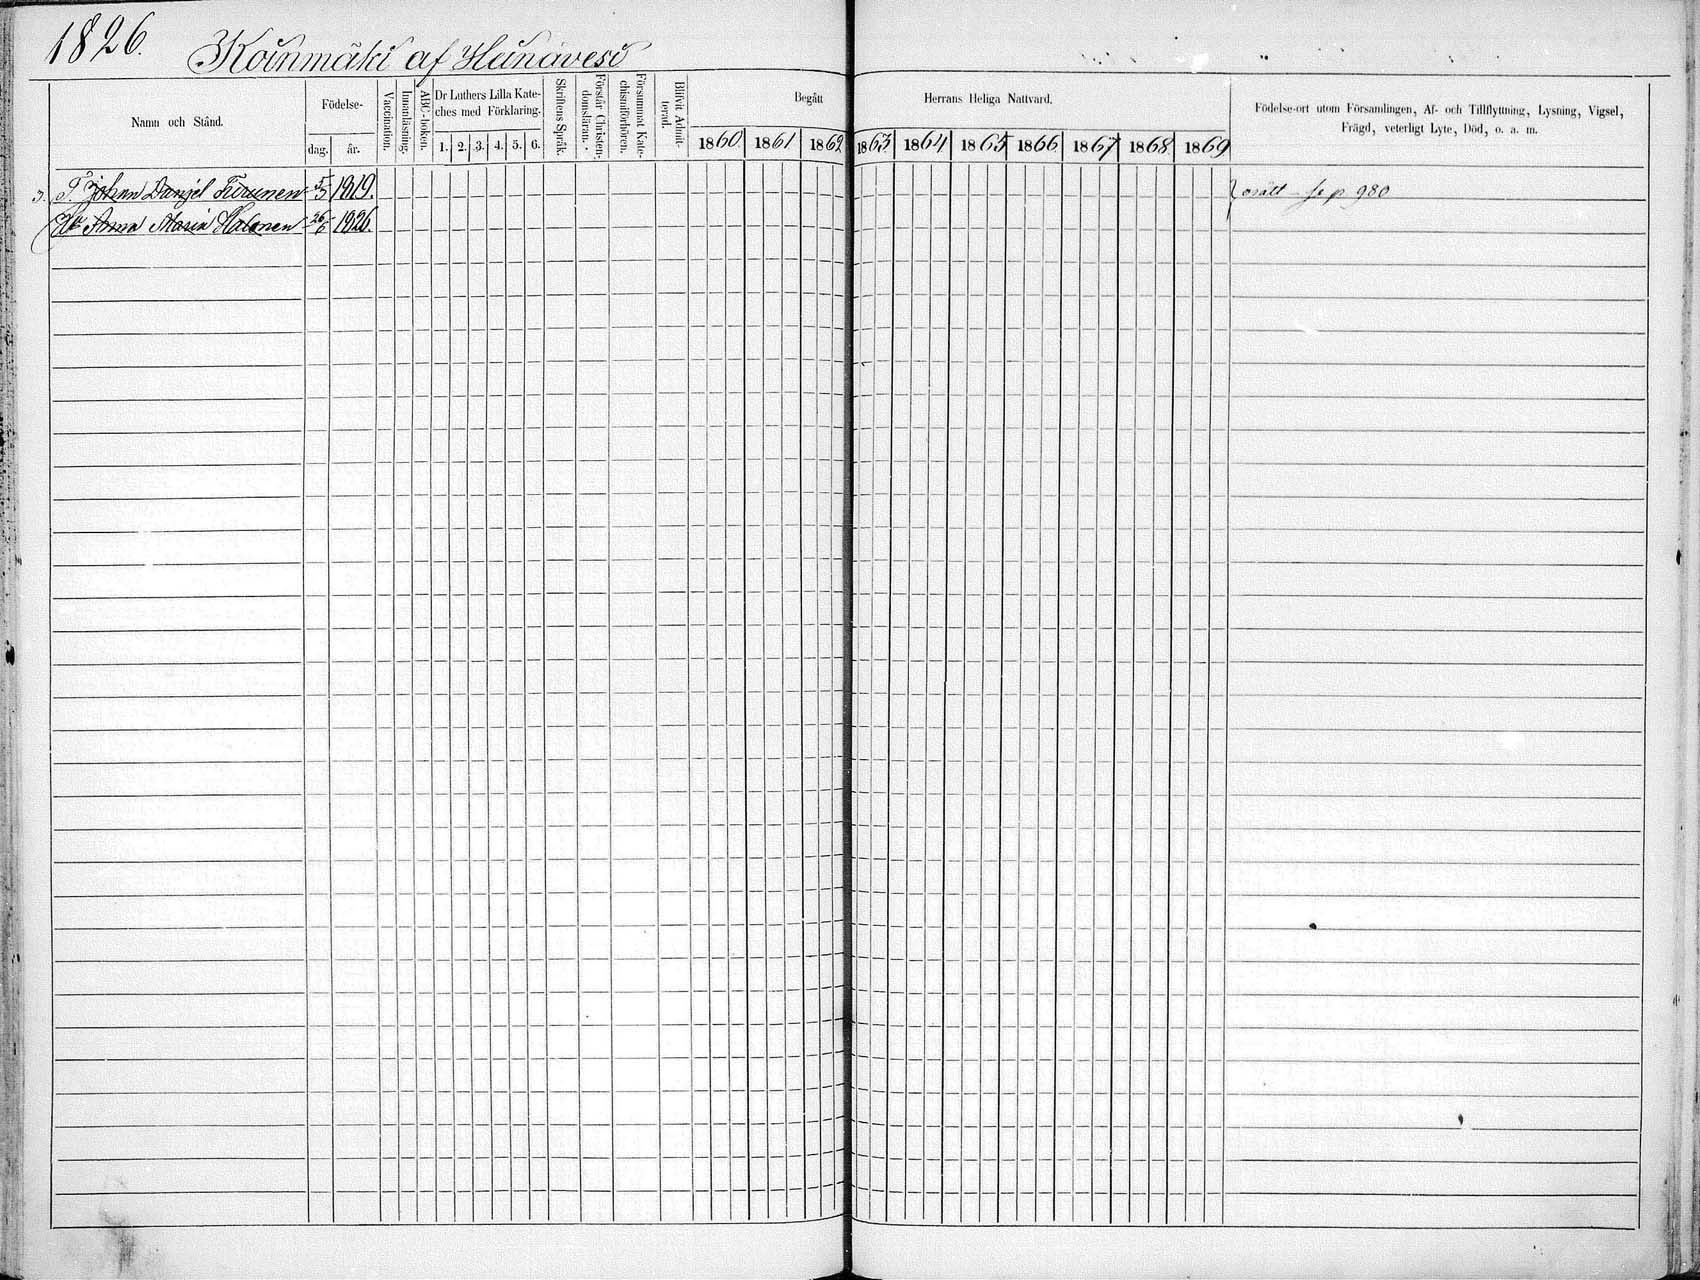 1826.
Koinmäki af Heinävesi
Namn och Stånd.
Födelse-
dag. år.
Vaccination.
Innanläsning.
ABC-boken.
Dr Luthers Lilla Kate-
ches med Förklaring.
1. 2. 3. 4. 5. 6.
Skriftens Språk.
Förstår Christen-
domsläran.
Försummat Kate-
chismiförhören.
Blifvit Admit-
terad.
Begått Herrans Heliga Nattvard.
1860 1861 1862 1863 1864 1865 1866 1867 1868 1869
Födelse-ort utom Församlingen, Af- och Tillflyttning, Lysning, Vigsel,
Frägd, veterligt Lyte, Död, o. a. m.
Johan Danjel 5/5 1819. orätt se p. 980
Anna Maria Halonen 26/6 1826.